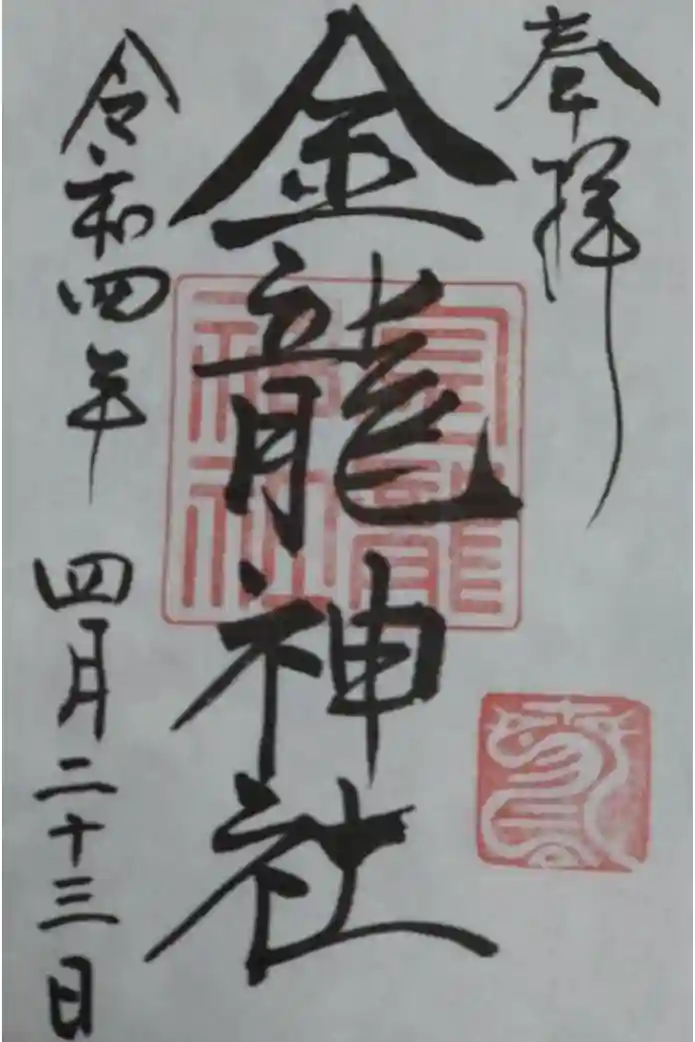 奉拝
金龍神社
令和四年 四月二十三日